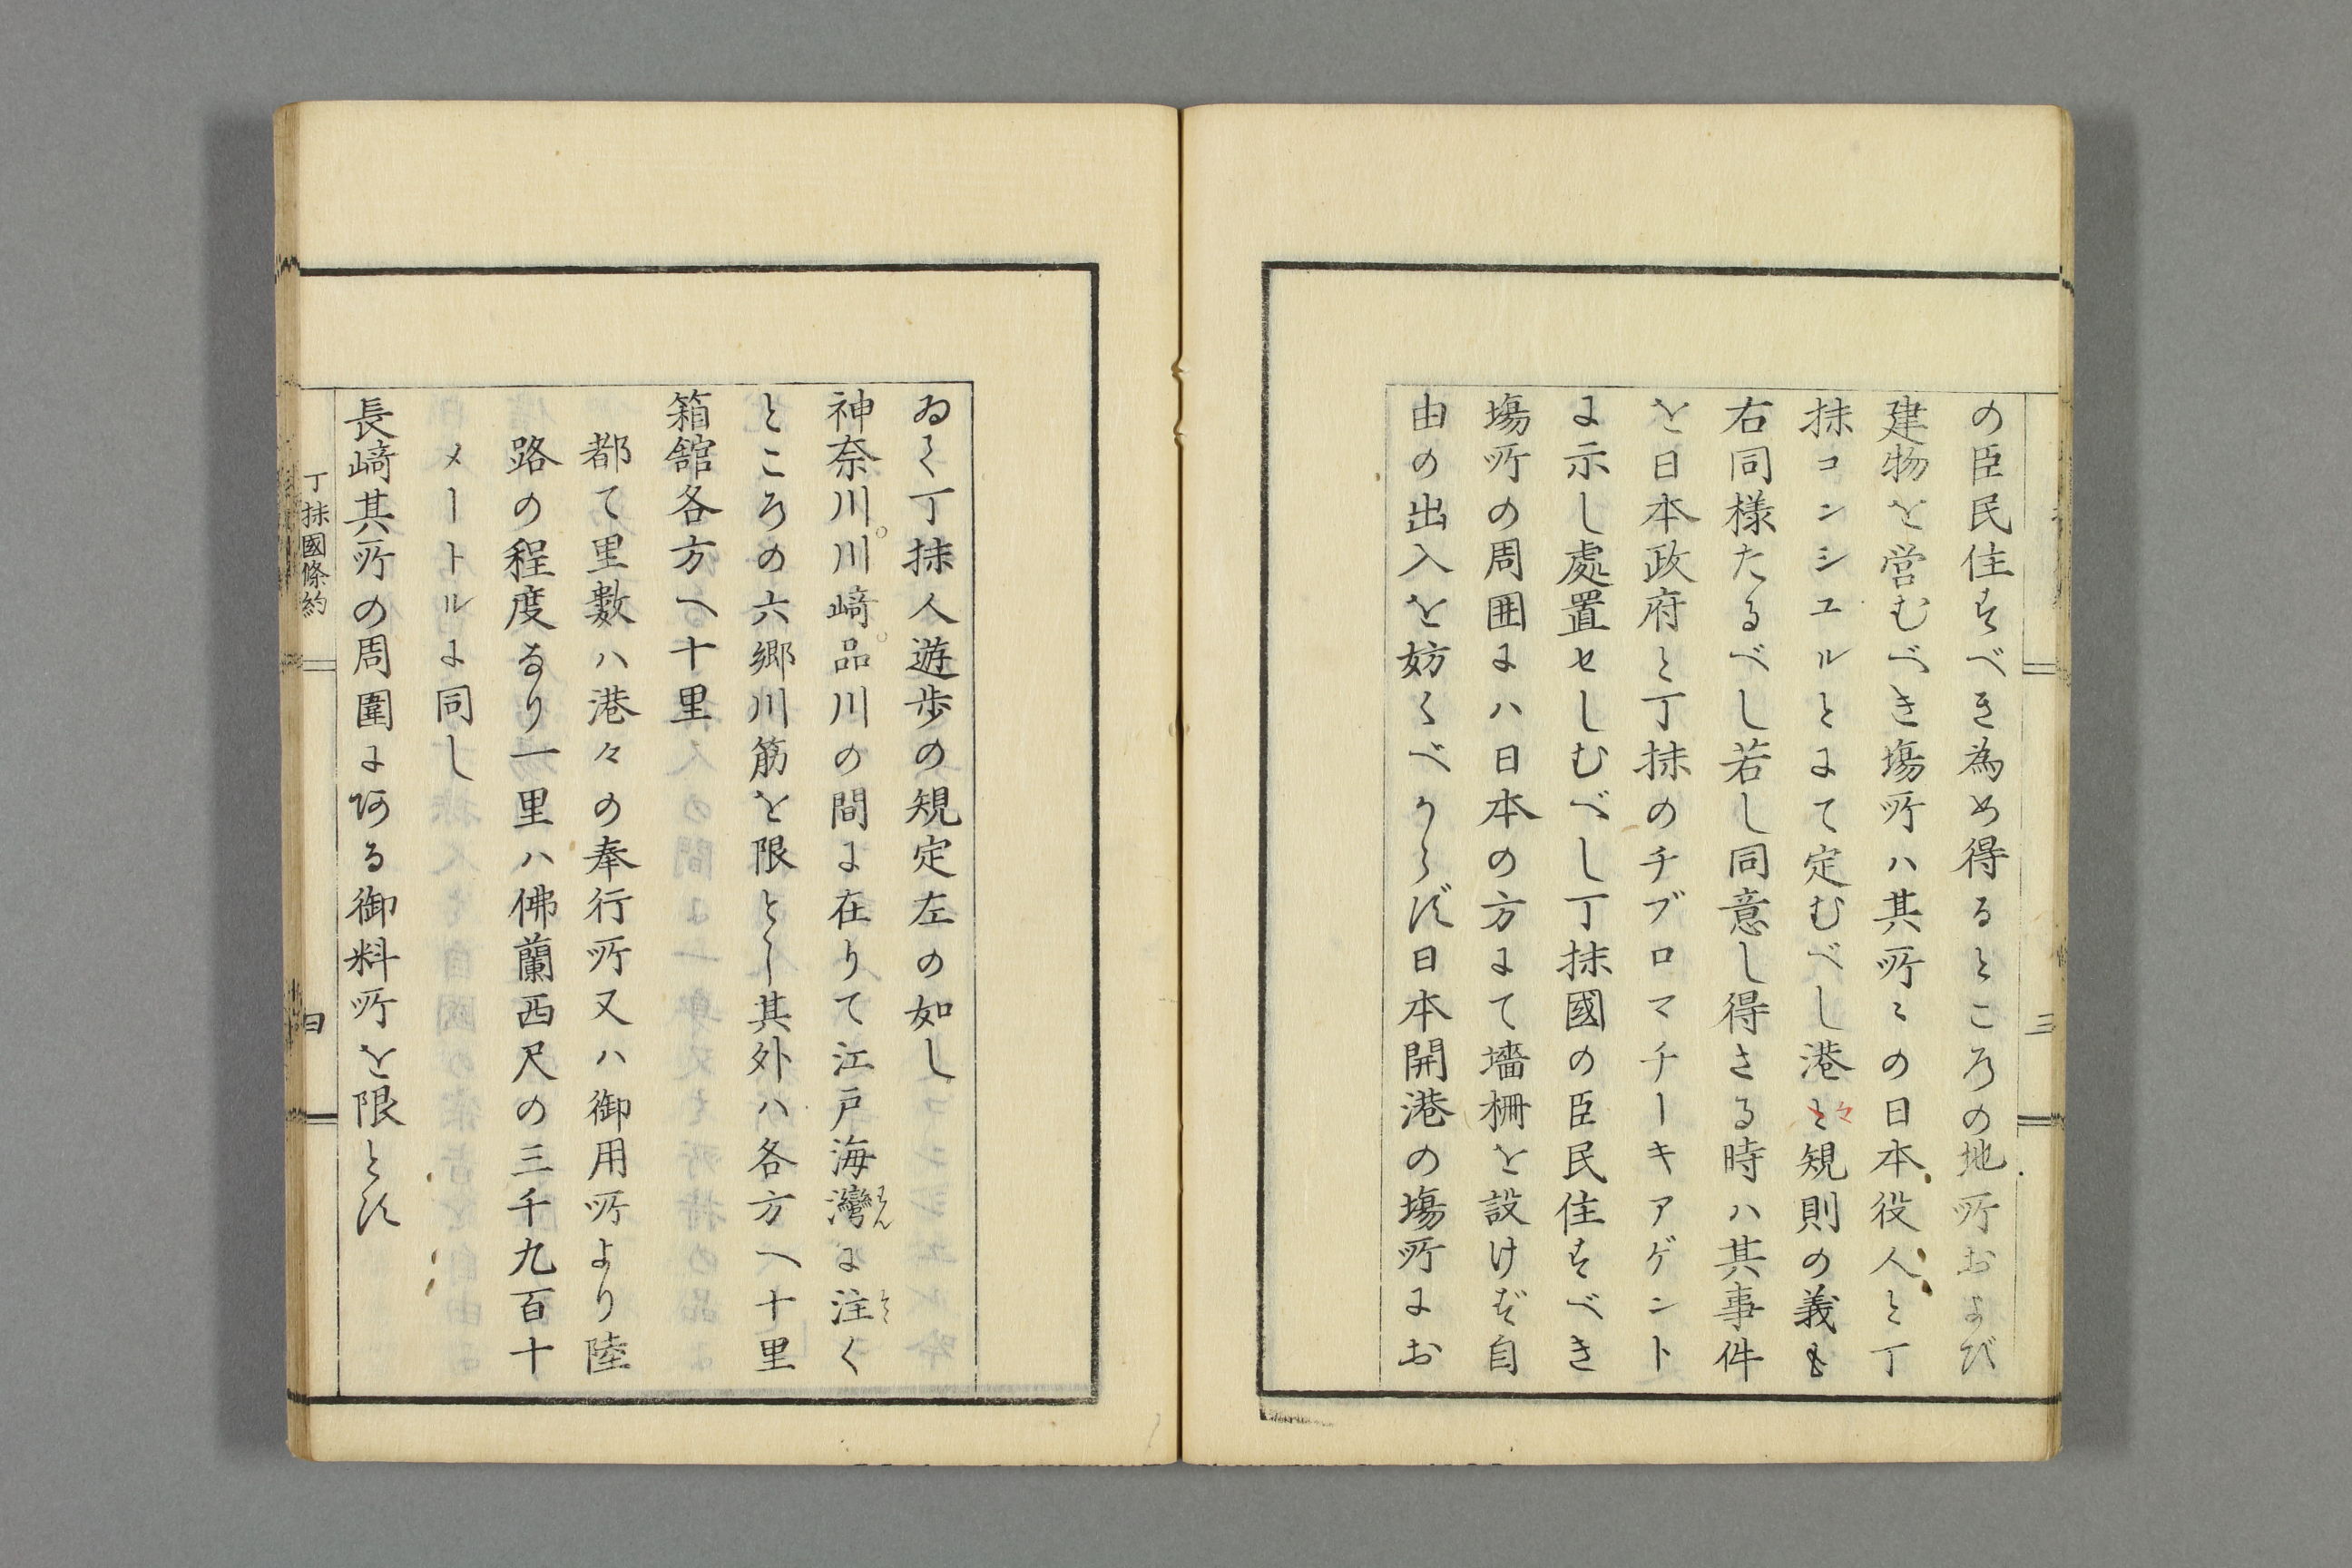 の臣民住すべき為め得るところの地所および
建物を営むべき場所ハ其所〻の日本役人と丁
抹コンシユルとにて定むべし港と規則の義も
々
右同様たるべし若し同意し得さる時ハ其事件
を日本政府と丁抹のチブロマチーキアゲント
に示し處置セしむべし丁抹國の臣民住すべき
場所の周囲にハ日本の方にて墻柵を設けず自
由の出入を妨くべからず日本開港の場所にお
三
ゐて丁抹人遊歩の規定左の如し
神奈川。川﨑。品川の間に在りて江戸海灣に注く
わん
そゝ
ところの六郷川筋を限とし其外ハ各方へ十里
箱舘各方へ十里
都て里數ハ港々の奉行所又ハ御用所より陸
路の程度なり一里ハ佛蘭西尺の三千九百十
メートルに同し
長﨑其所の周圍に阿る御料所を限とす
丁抹國條約